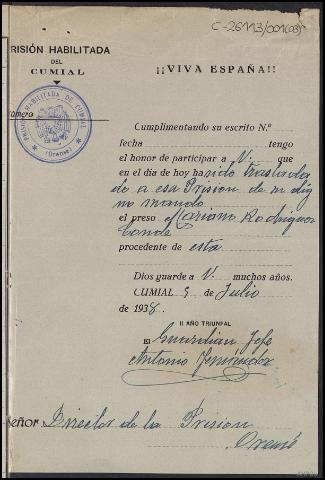 C-26113/001(03)
RISIÓN HABILITADA
DEL
CUMIAL
¡¡VIVA ESPAÑA!!
úmero
PRISIÓN HABILITADA DE CUMIAL
(Orense)
Cumplimentando su escrito N.º
fecha tengo
el honor de participar a V. que
en el día de hoy ha sido traslada
do a esa Prisión de su dig
no mando
el preso Mariano Rodriguez
Conde
procedente de esta
Dios guarde a V. muchos años.
CUMIAL 9 de Julio
de 1938.
II AÑO TRIUNFAL
El Guardian Jefe
Antonio Fernández
eñor Director de la Prision
Orense